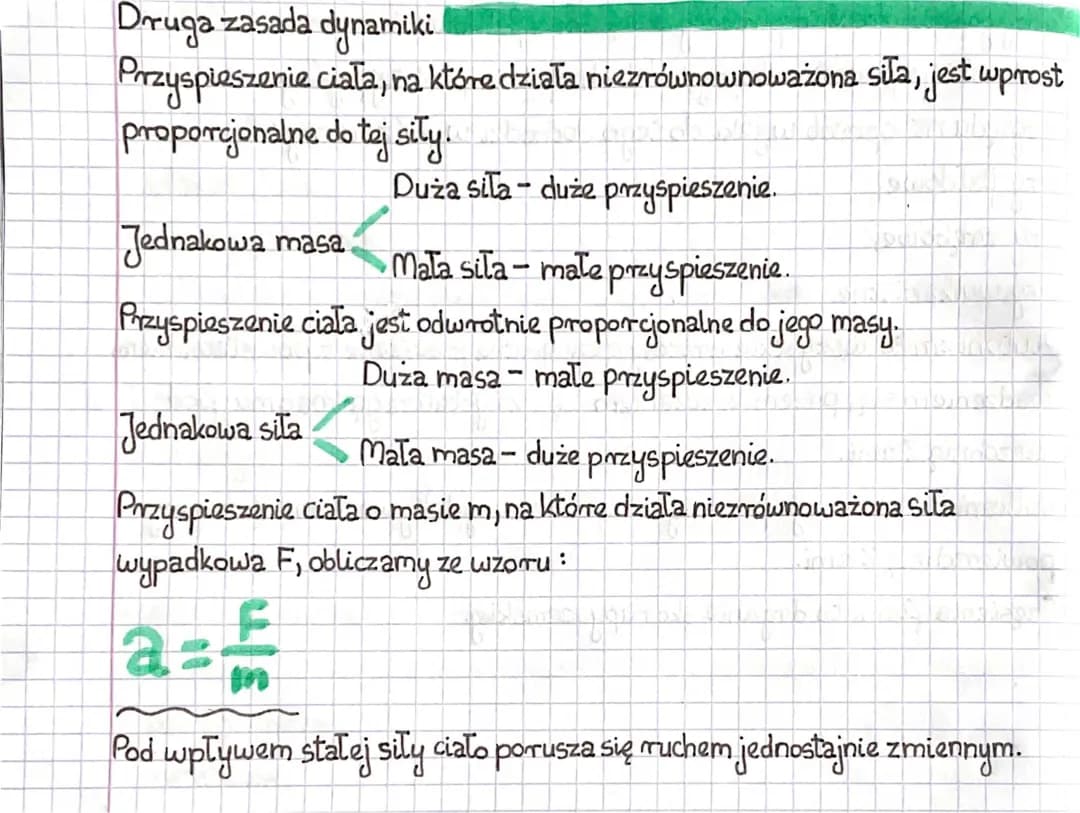 Druga zasada dynamiki
Przyspieszenie ciała, na które działa niezrównownoważona siła, jest wprost
proporcjonalne do tej siły.
Duża siła - duże przyspieszenie.
Jednakowa masa
Mała siła - małe przyspieszenie.
Przyspieszenie ciała jest odwrotnie proporcjonalne do jego masy.
Duża masa - małe przyspieszenie.
Jednakowa siła
Mała masa - duże przyspieszenie.
Przyspieszenie ciała o masie m, na które działa niezrównoważona siła
wypadkowa F, obliczamy ze wzoru:
a = F/m
Pod wpływem stałej siły ciało porusza się ruchem jednostajnie zmiennym.